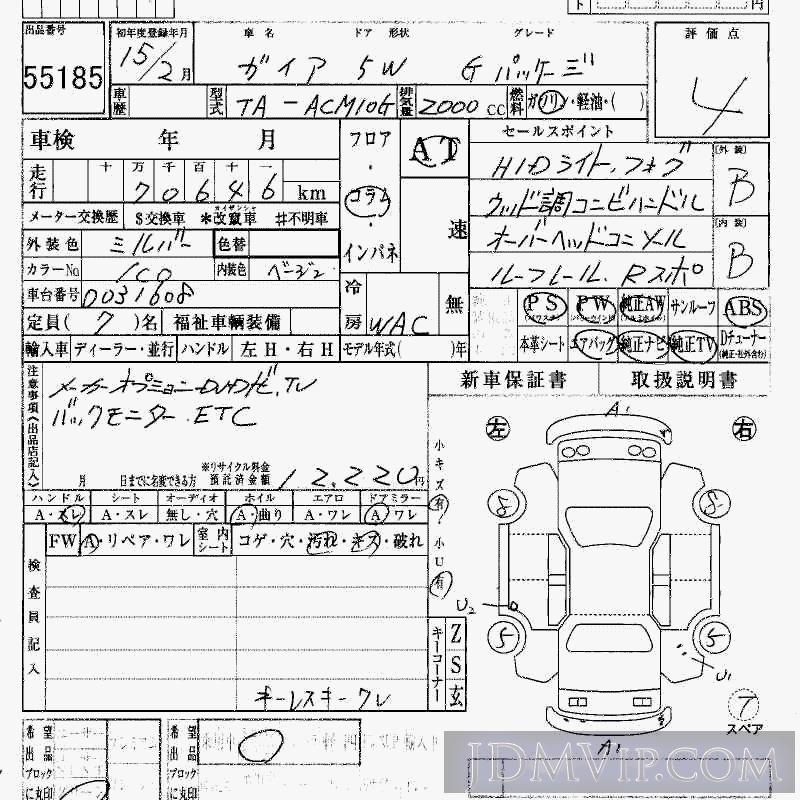 円
出品番号 初年度登録年月 車名 ドア 形状 グレード 評価点
55185 15/2月 ガイア 5W Gパッケージ 4
車歴 型式 TA-ACM10G 排気量 2000cc 燃料 ガソリン・軽油・( )
車検 年 月 フロア・コラム・インパネ AT 速 セールスポイント
走行 十万千百十一 70646 km HIDライト,フォグ [外装] B
メーター交換歴 $交換車 *改竄車 #不明車 ウッド調コンビハンドル
カイザンシャ
外装色 シルバー 色替 オーバーヘッドコンソール [内装] B
カラーNo 1C0 内装色 ベージュ ルーフレール.Rスポ
車台番号 0031608 冷房 WAC 無 PS PW 純正AW サンルーフ ABS
定員( 7 )名 福祉車輌装備 本革シート エアバッグ 純正ナビ 純正TV Dチューナー
(純正・社外含む)
輸入車 ディーラー・並行 ハンドル 左H・右H モデル年式( )年
新車保証書 取扱説明書
注意事項(出品店記入) メーカーオプションDVDナビ,TV
バックモニター.ETC
月 日までに名変できる方 ※リサイクル料金預託済金額 12,220円
ハンドル シート オーディオ ホイル エアロ ドアミラー
A・スレ A・スレ 無し・穴 A・曲り A・ワレ A・ワレ
FW A・リペア・ワレ 室内シート コゲ・穴・汚れ・キズ・破れ
検査員記入
キーレスキーワレ
小キズ有 小U有
キーコーナー Z S 玄
左 A1 右
8 8
U2
5 5
U1
7
スペア
A1
希望出品ブロックに丸印
希望出品ブロックに丸印
JDMVIP.COM